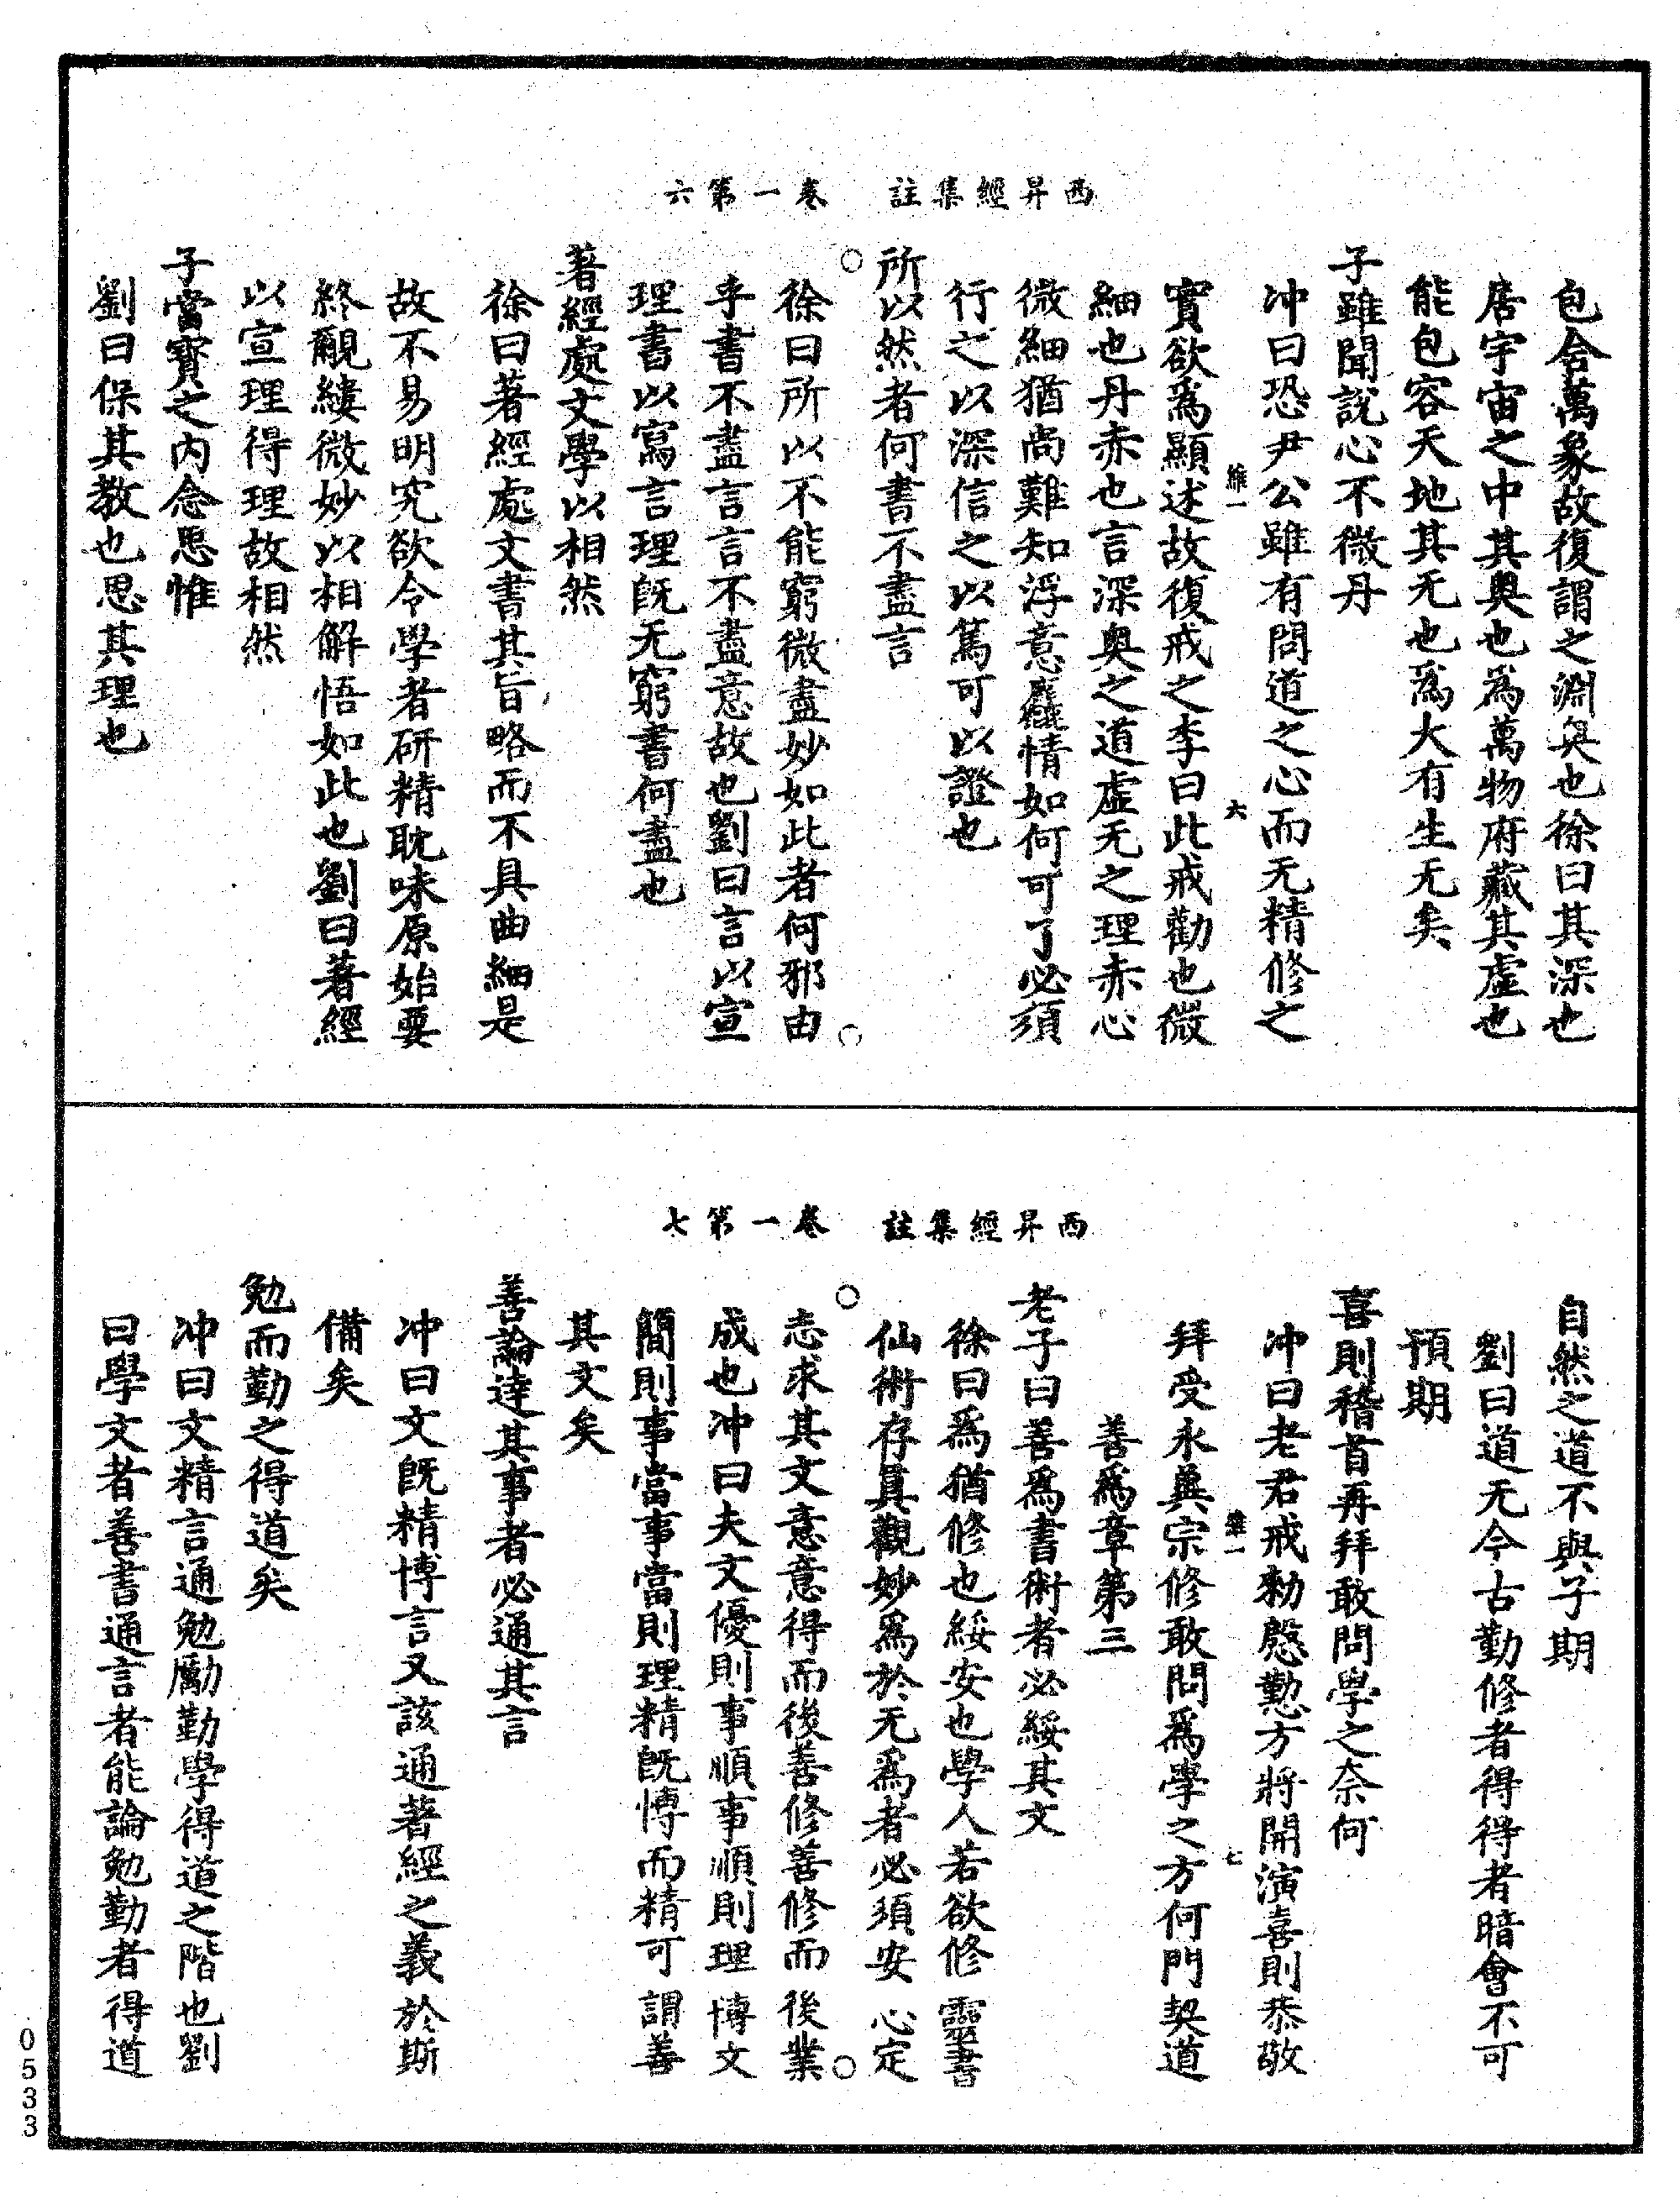 西昇經集註　卷一第六
包含萬象故復謂之淵奧也徐曰其深也
居宇宙之中其奧也為萬物府藏其虛也
能包容天地其无也為大有生无矣
子雖聞說心不微丹
冲曰恐尹公雖有問道之心而无精修之
維一　六
實欲為顯述故復戒之李曰此戒勸也微
細也丹赤也言深奧之道虛无之理赤心
微細猶尚難知浮意麤情如何可了必須
行之以深信之以篤可以證也
所以然者何書不盡言
徐曰所以不能窮微盡妙如此者何邪由
乎書不盡言言不盡意故也劉曰言以宣
理書以寫言理既无窮書何盡也
著經處文學以相然
徐曰著經處文書其旨略而不具曲細是
故不易明究欲令學者研精耽味原始要
終覼縷微妙以相解悟如此也劉曰著經
以宣理得理故相然
子當寶之內念思惟
劉曰保其教也思其理也
西昇經集註　卷一第七
自然之道不與子期
劉曰道无今古勤修者得得者暗會不可
預期
喜則稽首再拜敢問學之奈何
冲曰老君戒勑慇懃方將開演喜則恭敬
維一　七
拜受永冀宗修敢問為學之方何門契道
善為章第三
老子曰善為書術者必綏其文
徐曰為猶修也綏安也學人若欲修靈書
仙術存真觀妙為於无為者必須安心定
志求其文意意得而後善修善修而後業
成也冲曰夫文優則事順事順則理博文
簡則事當事當則理精既博而精可謂善
其文矣
善論達其事者必通其言
冲曰文既精博言又該通著經之義於斯
備矣
勉而勤之得道矣
冲曰文精言通勉勵勤學得道之階也劉
曰學文者善書通言者能論勉勤者得道
0533